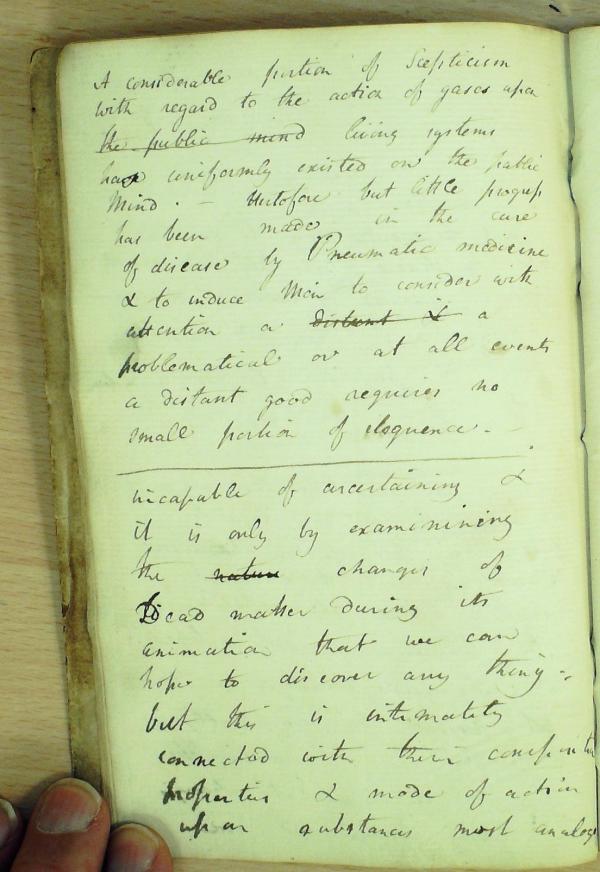 A considerable portion of Scepticism
with regard to the action of gases upon
the public mind living systems
has uniformly existed on the public
Mind. - Heretofore but little progress
has been made in the cure
of disease by Pneumatic medicine
& to induce Men to consider with
attention a distant & a
problematical or at all events
a distant good requires no
small portion of eloquence. -
incapable of ascertaining &
it is only by examinining
the nature changes of
Dead matter during its
animation that we can
hope to discover any thing -
but this is intimately
connected with their
properties & mode of action
upon substances most analog